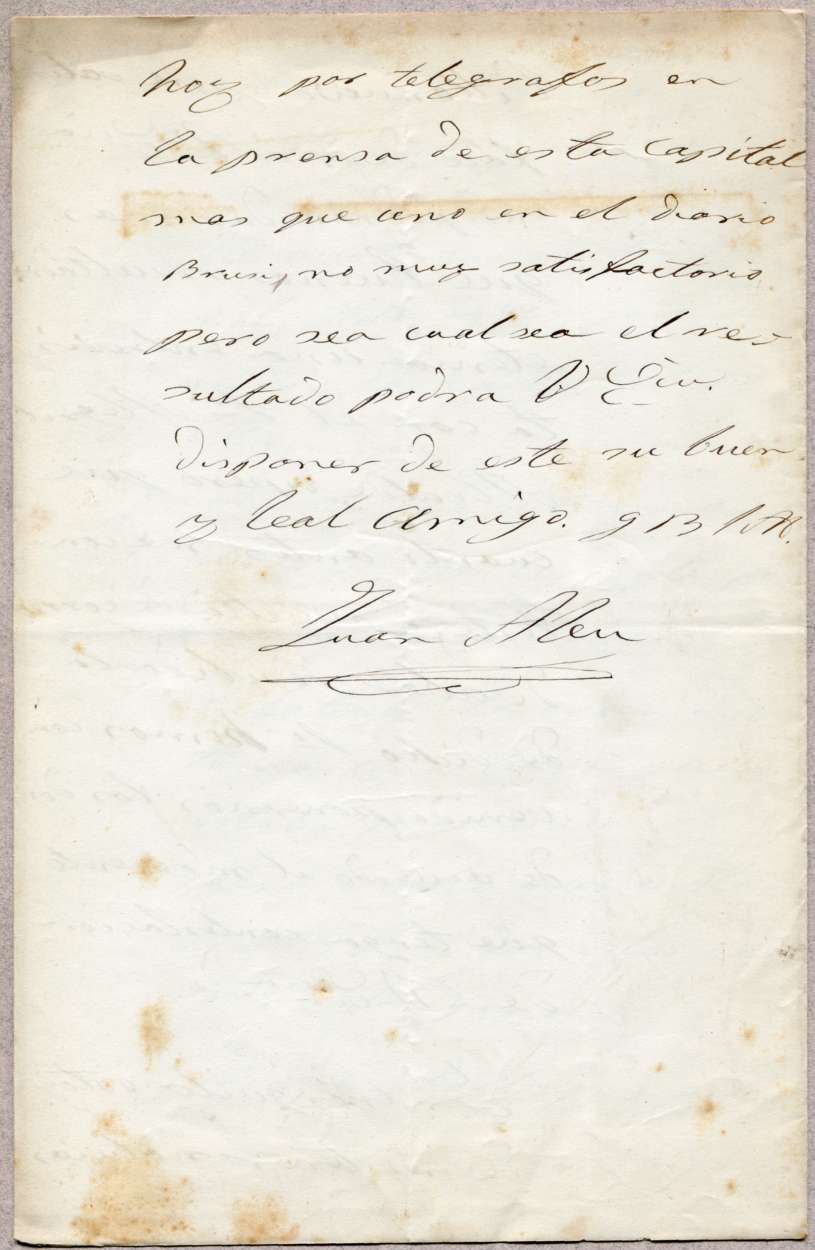 hoy por telegrafos en
la prensa de esta Capital
mas que uno en el diario
Brusi, no muy satisfactorio
pero sea cual sea el re-
sultado podra V Ecu.
disponer de este su buen
y leal amigo. q B S M.
Juan Aleu